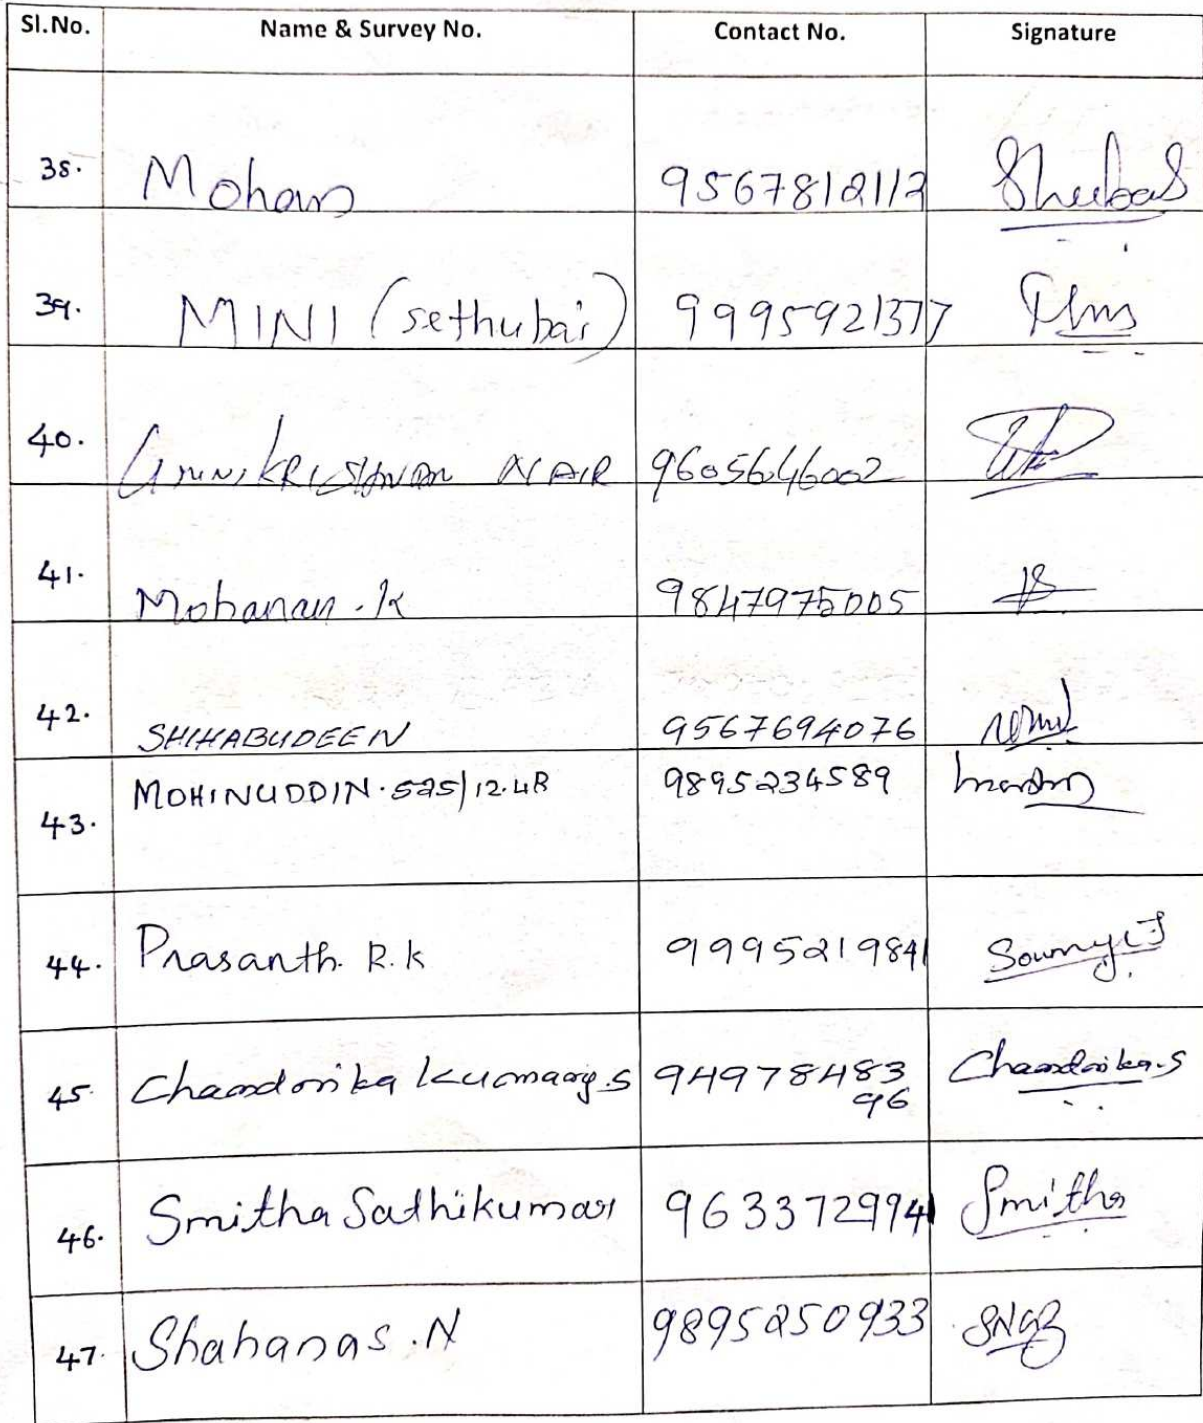 Sl.No. Name & Survey No. Contact No. Signature
38. Mohan 9567812112 Sheeba S
39. MINI (sethubai) 9995921377
40. Unnikrishnan NAIR 9605646002
41. Mohanan. K 9847975005
42. SHIHABUDEEN 9567694076
43. MOHINUDDIN. 525/12.4R 9895234589
44. Prasanth. R.k 9995219841 Sowmya
45. Chandrika Kumary.s 94978483 Chandrika.s
96
46. Smitha Sathikumar 9633729941 Smitha
47. Shahanas .N 9895250933